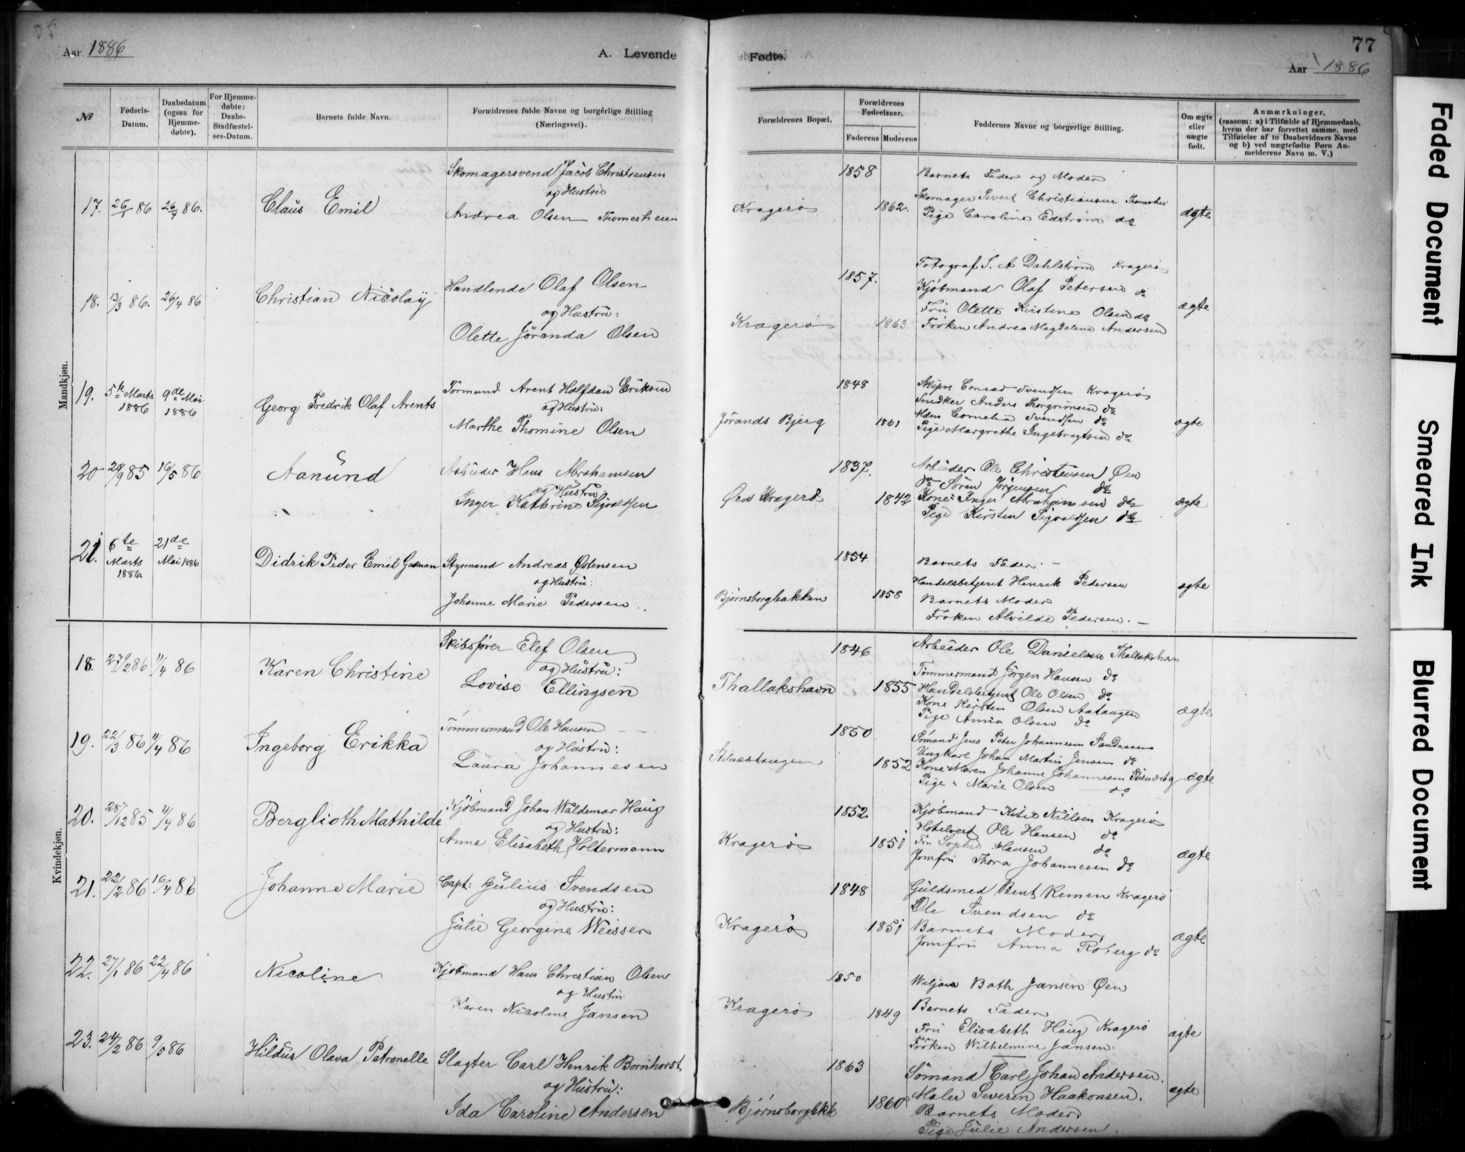 Aar 1886
A. Levende
Fødte.
77
Aar 1886
№
Fødsels-Datum.
Daabsdatum (ogsaa for Hjemme-døbte).
For Hjemme-døbte: Daabs-Stadfæstel-ses-Datum.
Barnets fulde Navn.
Forældrenes fulde Navne og borgerlige Stilling (Næringsvei).
Forældrenes Bopæl.
Forældrenes Fødselsaar.
Faderens
Moderens
Faddernes Navne og borgerlige Stilling.
Om ægte eller uægte født.
Anmærkninger.
(saasom: a) i Tilfælde af Hjemmedaab, hvem der har forrettet samme, med Tilføielse af to Daabsvidners Navne og b) ved uægtefødte Børn An-melderens Navn m. V.)
Mandkjøn.
17. 26/1 86 26/4 86. Claus Emil
Skomagersvend Jacob Christiansen
og Hustrü
Andrea Olsen
Kragerø
1858
1862.
Barnets Fader og Moder
Skomager Sivert Christiansen
Pige Caroline Edstrøm do
ægte
18. 13/3 86. 26/4 86 Christian Nicolaÿ
Handlende Olaf Olsen
og Hustrü:
Olette Jöranda Olsen
Kragerø
1857.
1863.
Fotograf S. A Dahlstrøm Kragerø
Kjøbmand Olaf Petersen do
Frü Olette Kirstine Olsen do
Frøken Andrea Magdalene Andersen
ægte
19. 5te Marts 1886 9de Mai 1886 Georg Fredrik Olaf Arents
Tørmand Arent Halfdan Eriksen
og Hustrü:
Marthe Thomine Olsen
Jørands Bjerg
1848
1861
Skipr. Conrad Svendsen Kragerø
Snedker Anders Thorgrimsen do
Mdm Cornelia Svendsen do
Pige Margrethe Ingebregtsen do
ægte
20 28/9 85 16/5 86 Aanünd
Arbeider Hans Abrahamsen
og Hustrü
Inger Kathrine Sigvaldsen
Øen Kragerø
1837.
1842
Arbeider Ole Christensen Øen
do Søren Jørgensen do
Kone Inger Abrahamsen do
Pige Kirsten Sigvaldsen do
ægte
21. 6te Marts 1886 21de Mai 1886 Didrik Peder Emil Gusman
Styrmand Andreas Østensen
og Hustrü:
Johanne Marie Pedersen
Bjørnsborgbakken
1854
1858
Barnets Fader.
Handelsbetjent Henrik Pedersen
Barnets Moder
Frøken Alvilde Pedersen.
ægte
Kvindekjøn.
18. 27/2 86 11/4 86 Karen Christine
Skibsfører Elef Olsen
og Hustrü:
Lovise Ellingsen
Thallakshavn
1846
1855
Arbeider Ole Danielsen Thallakshavn
Tømmermand Jørgen Hansen do
Handelsbetjent Ole Olsen do
Kone Kirsten Olsen Aatangen
Pige Anna Olsen do
ægte
19. 22/3 86 11/4 86 Ingeborg Erikka
Tømmermand Ole Hansen
og Hüstrü:
Laura Johannesen
1850
1852
Sømand Jens Peter Johannesen
Ungkarl Johan Martin Jensen do
Kone Maren Johanne Johannesen
Pige Marie Olsen do
ægte
20. 28/12 85 11/4 86 Berglioth Mathilde
Kjøbmand Johan Waldemar Haug
og Hustrü:
Anne Elisabeth Holtermann
Kragerø
1852.
1851
Kjøbmand Nielsen Kragerø
Hotelvert Ole Hansen do
Frü Sophie Hansen do
Jomfrü Thora Johannesen do
ægte
21. 22/2 86 16/4 86 Johanne Marie
Capt: Jülius Svendsen
og Hustrü:
Jülie Georgine Weisser
Kragerø
1848
1851
Guldsmed Bent Riemen Kragerø
Ole Svendsen do
Barnets Moder
Jomfrü Anna Roberg do
ægte
22. 27/1 86 22/4 86 Nicoline
Kjøbmand Hans Christian Olsen
og Hustrü
Karen Nicoline Jansen
Kragerø
1850
1849
Both Jansen Øen
Barnets Fader
Frü Elisabeth Haug Kragerø
Frøken Wilhelmine Jansen.
ægte
23. 24/2 86 9/5 86 Hildür Olava Petronelle
Slagter Carl Henrik Bornhorst
og Hustrü:
Ida Caroline Andersen
Bjørnsborgbkk
1863
1860
Sømand Carl Johan Andersen.
Maler Severin Haakonsen.
Barnets Moder
Pige Julie Andersen.
ægte
Faded Document
Smeared Ink
Blurred Document